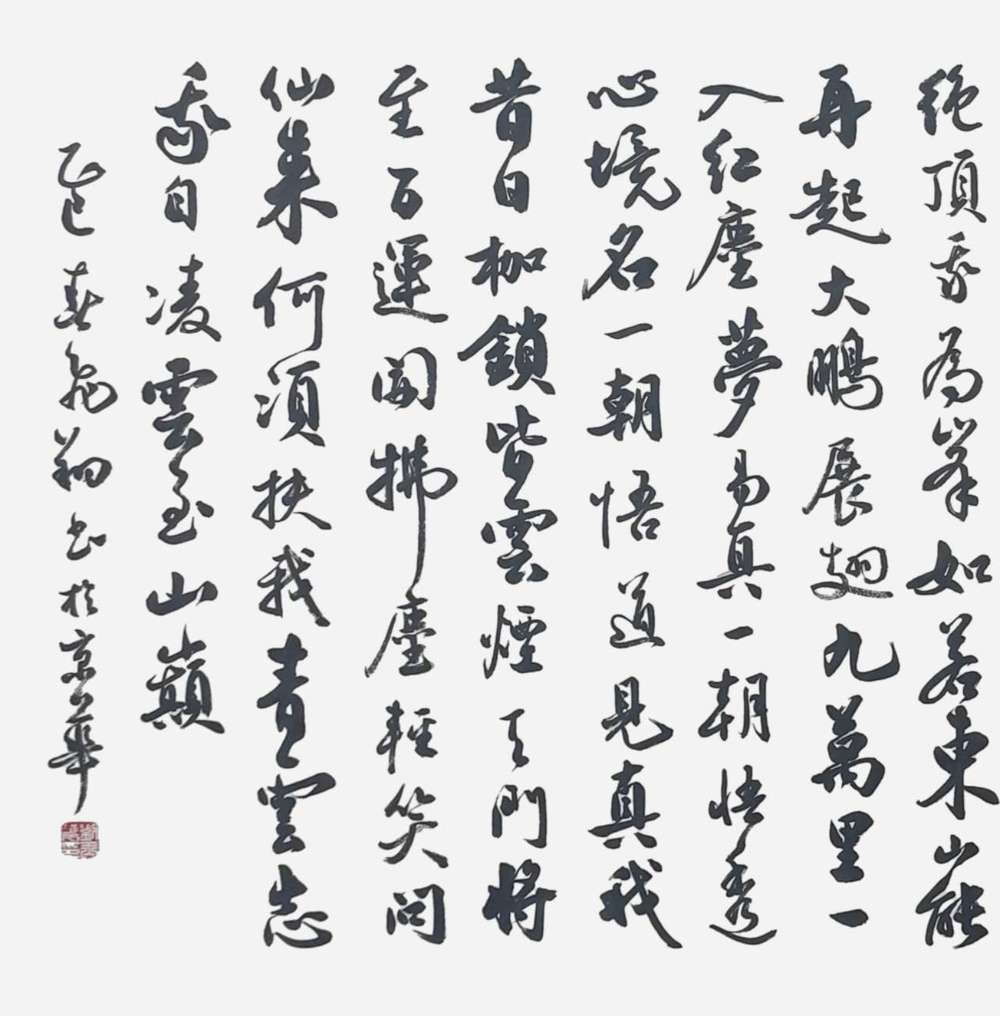 絶頂我為峯如若東山能
再起大鵬展翅九萬里一
入紅塵夢易真一朝悟透
心境名一朝悟道見真我
昔日枷鎖皆雲煙天門將
至百運開拂塵輕笑問
仙來何須扶我青雲志
我自凌雲至山巔
乙巳春飛翔書於京華